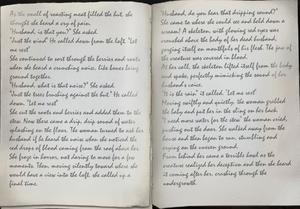 As the smell of roasting meat filled the hut, she
thought she heard a cry of pain.
"Husband, is that you?" She asked.
"Just the wind" He called down from the loft, "Let
me rest"
She continued to sort through the berries and roots
when she heard a crunching noise, like bones being
ground together.
"Husband, what is that noise?" She asked.
"Just the trees bunching against the hut" He called
down. "Let me rest"
She cut the roots and berries and added them to the
stew. Now there came a drip, drip sound of water
splashing on the floor. The woman turned to ask her
husband if he heard the noise when she noticed the
red drops of blood coming from the roof above her.
She froze in horror, not daring to move for a few
moments. Then, moving silently toward where she
would have a view into the loft, she called up a
final time.
"Husband, do you hear that dripping sound?"
She came to where she could see and held down a
scream! A skeleton, with glowing red eyes was
crouched above the body of her dead husband,
gorging itself on mouthfuls of his flesh. The jaw of
the creature was covered in blood.
At her call, the skeleton lifted itself from the body
and spoke, perfectly mimicking the sound of her
husband's voice.
"It is the rain" it called. "Let me rest"
Moving swiftly and quietly, the woman grabbed
the baby and put her in the sling on her back.
"I need more water for the stew" the woman cried,
pushing out the door. She walked away from the
house and then began to run, stumbling and
tripping on the uneven ground.
From behind her came a terrible howl as the
creature realized her deception and then she heard
it coming after her, crashing through the
undergrowth.